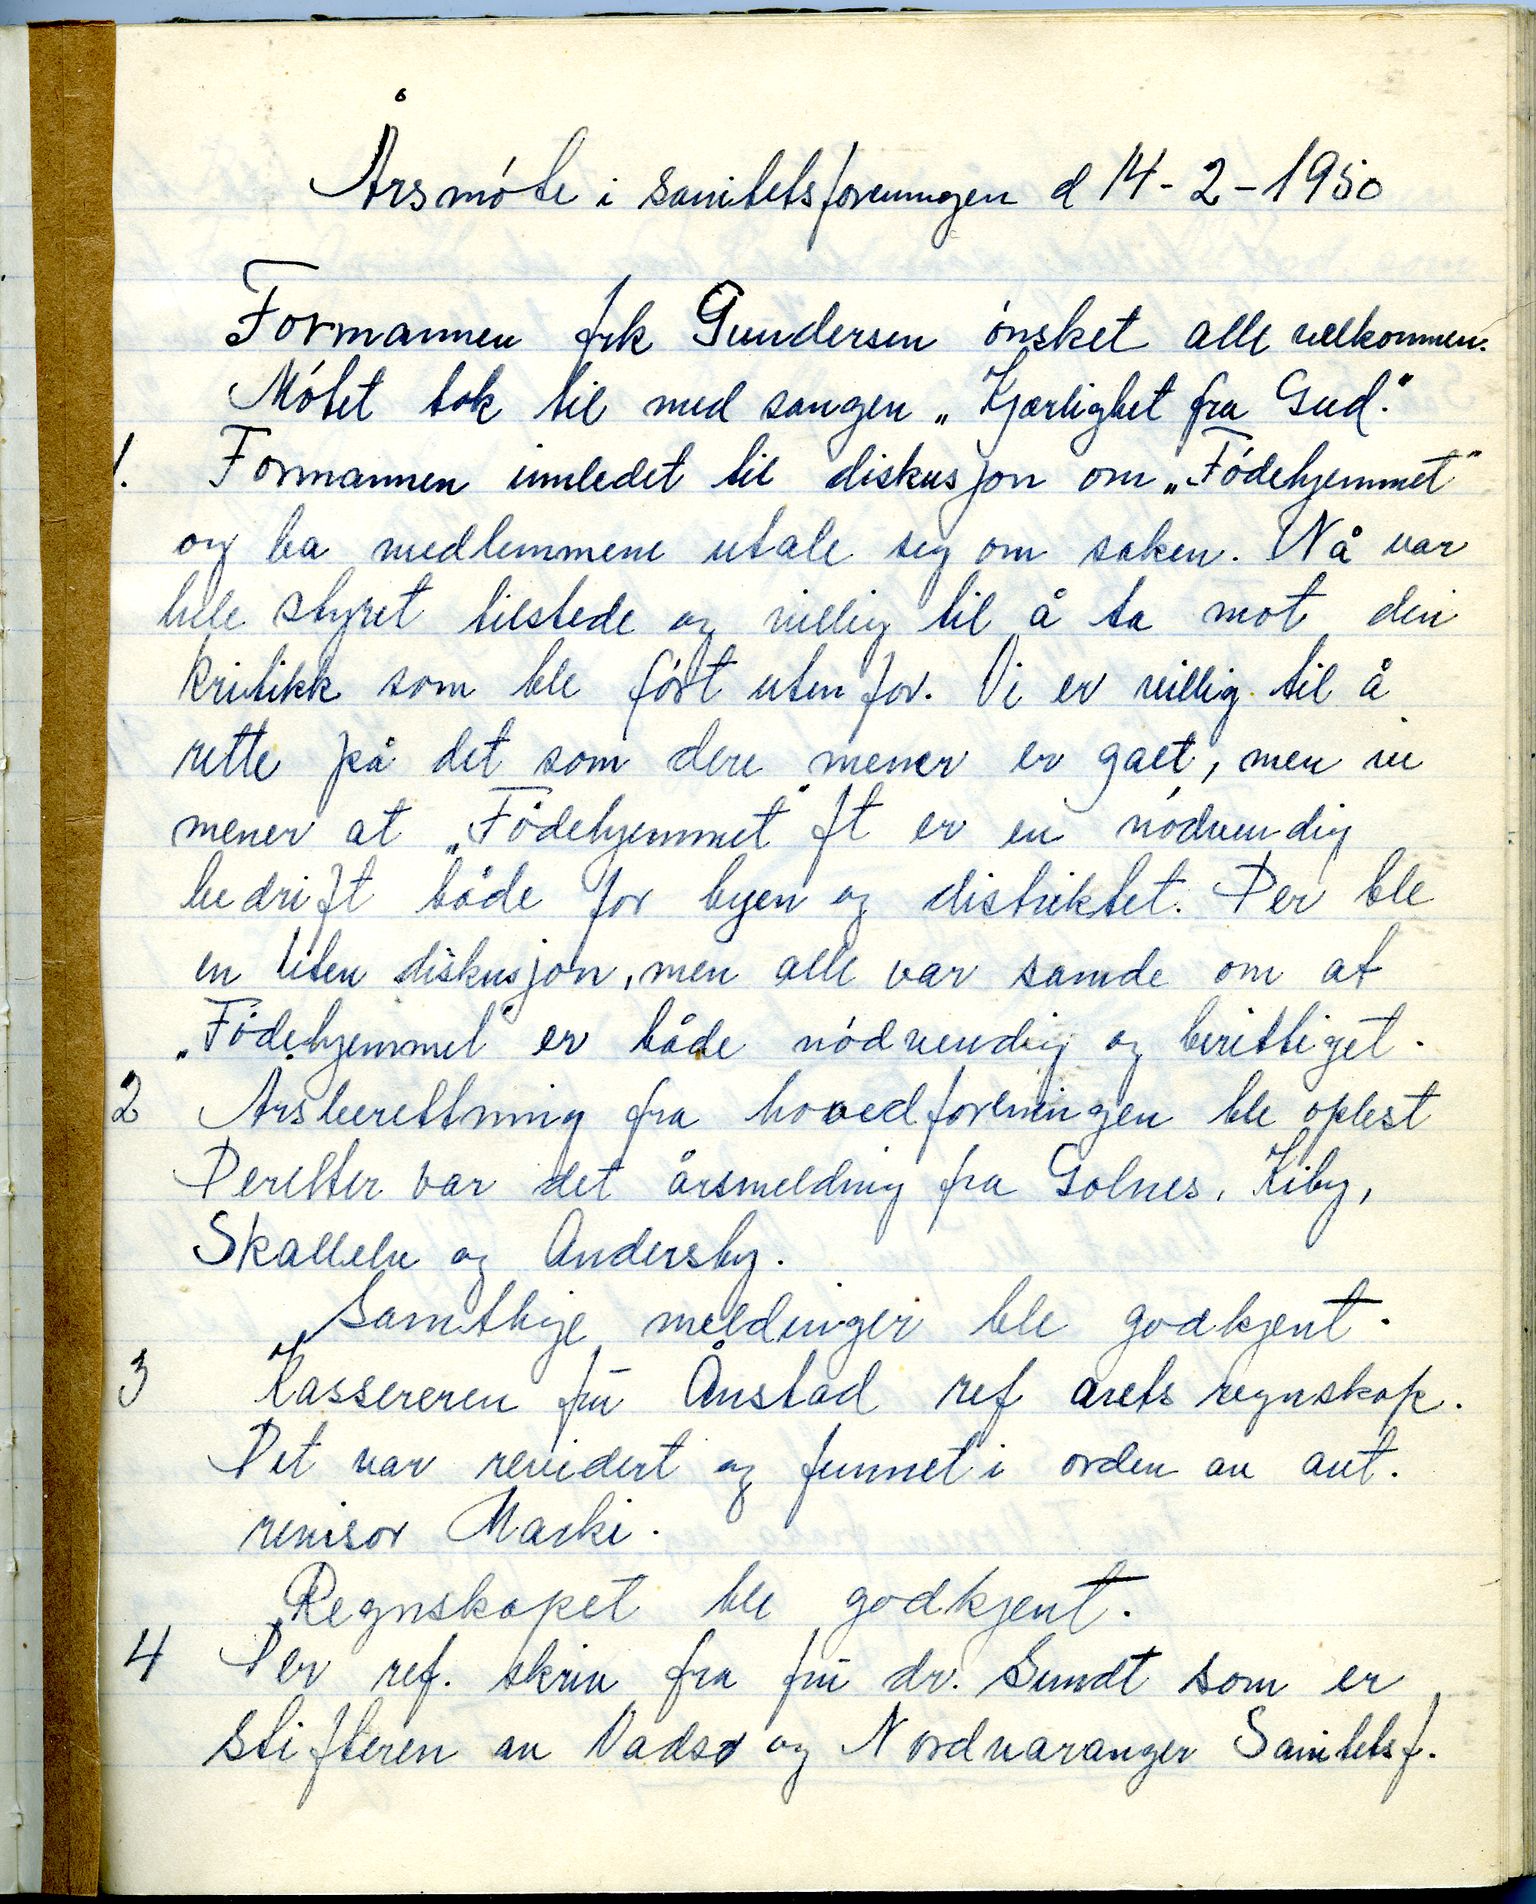 Årsmóte i sanitetsforeningen d 14-2-1950
Formannen frk Gundersen ónsket alle velkommen.
Mótet tok til med sangen „Kjærlighet fra Gud."
1. Formannen innledet til diskusjon om „Fódehjemmet"
og ba medlemmene utale seg om saken. Nå var
hele styret tilstede og villig til å ta mot den
kritikk som ble fórt utenfor. Vi er villig til å
rette på det som dere mener er galt, men vi
mener at „Fódehjemmet" ft er en nódvendig
bedrift både for byen og distriktet. Der ble
en liten diskusjon, men alle var samde om at
„Fódehjemmet" er både nódvendig og berettiget.
2 Arsberettning fra hovedforeningen ble oplest
Deretter var det årsmelding fra Golnes, Kiby,
Skallelv og Andersby.
Samtlige meldinger ble godkjent.
3 Kassereren frú Ånstad ref arets regnskap.
Det var revidert og funnet i orden av aut.
revisor Maski.
Regnskapet ble godkjent.
4 Der ref. skriv fra frú dr. Sundt som er
stifteren av Vadsø og Nordvaranger Sanitetsf.